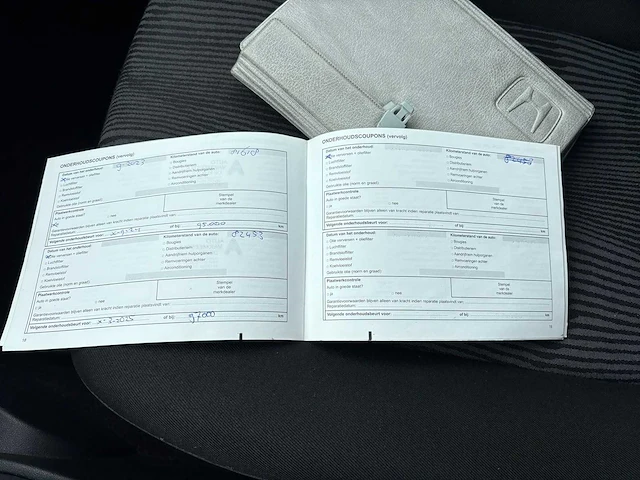 ONDERHOUDSCOUPONS (vervolg)
Datum van het onderhoud: Kilometerstand van de auto:
Olie verversen + oliefilter
Luchtfilter
Brandstoffilter
Remvloeistof
Koelvloeistof
Bougies
Distributieriem
Aandrijfriem hulporganen
Remvoeringen achter
Airconditioning
Gebruikte olie (norm en graad):
Plaatwerkcontrole
Auto in goede staat?
ja nee
Stempel
van de
merkdealer
Garantievoorwaarden blijven alleen van kracht indien reparatie plaatsvindt van:
Reparatiedatum:
Volgende onderhoudsbeurt voor: of bij: 95.000 km
Datum van het onderhoud: Kilometerstand van de auto: 82493
Olie verversen + oliefilter
Luchtfilter
Brandstoffilter
Remvloeistof
Koelvloeistof
Bougies
Distributieriem
Aandrijfriem hulporganen
Remvoeringen achter
Airconditioning
Gebruikte olie (norm en graad):
Plaatwerkcontrole
Auto in goede staat?
ja nee
Stempel
van de
merkdealer
Garantievoorwaarden blijven alleen van kracht indien reparatie plaatsvindt van:
Reparatiedatum:
Volgende onderhoudsbeurt voor: x-2-2025 of bij: 97000 km
ONDERHOUDSCOUPONS (vervolg)
Datum van het onderhoud: Kilometerstand van de auto:
Olie verversen + oliefilter
Luchtfilter
Brandstoffilter
Remvloeistof
Koelvloeistof
Bougies
Distributieriem
Aandrijfriem hulporganen
Remvoeringen achter
Airconditioning
Gebruikte olie (norm en graad):
Plaatwerkcontrole
Auto in goede staat?
ja nee
Stempel
van de
merkdealer
Garantievoorwaarden blijven alleen van kracht indien reparatie plaatsvindt van:
Reparatiedatum:
Volgende onderhoudsbeurt voor: of bij: km
Datum van het onderhoud: Kilometerstand van de auto:
Olie verversen + oliefilter
Luchtfilter
Brandstoffilter
Remvloeistof
Koelvloeistof
Bougies
Distributieriem
Aandrijfriem hulporganen
Remvoeringen achter
Airconditioning
Gebruikte olie (norm en graad):
Plaatwerkcontrole
Auto in goede staat?
ja nee
Stempel
van de
merkdealer
Garantievoorwaarden blijven alleen van kracht indien reparatie plaatsvindt van:
Reparatiedatum:
Volgende onderhoudsbeurt voor: of bij: km